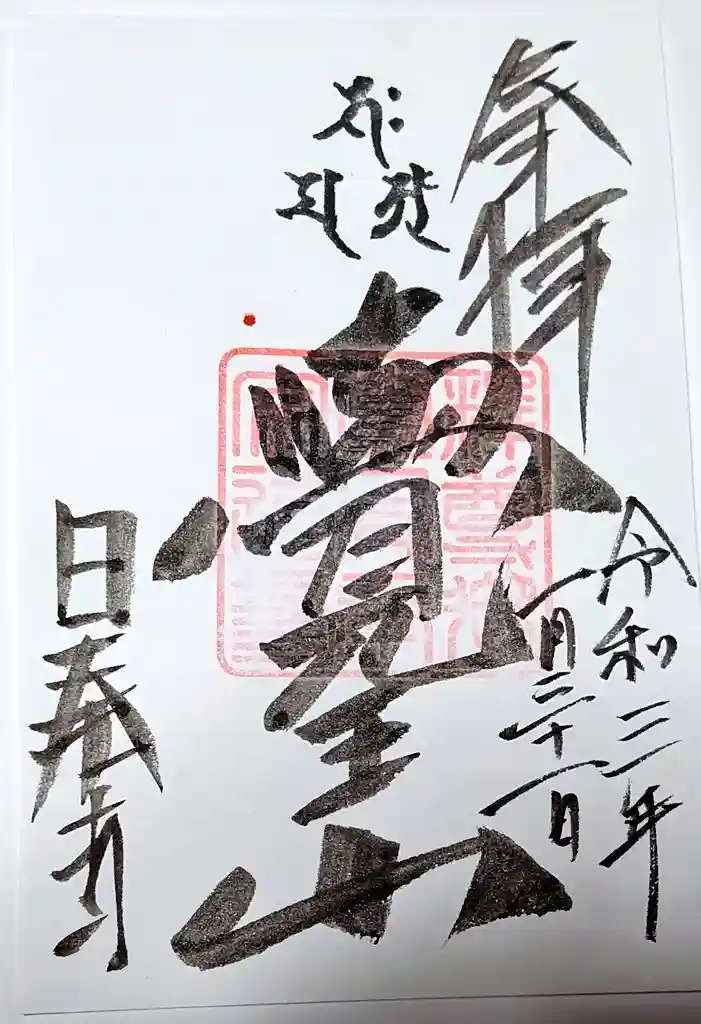 奉拝
令和三年
一月二十一日
覺王山
日泰寺